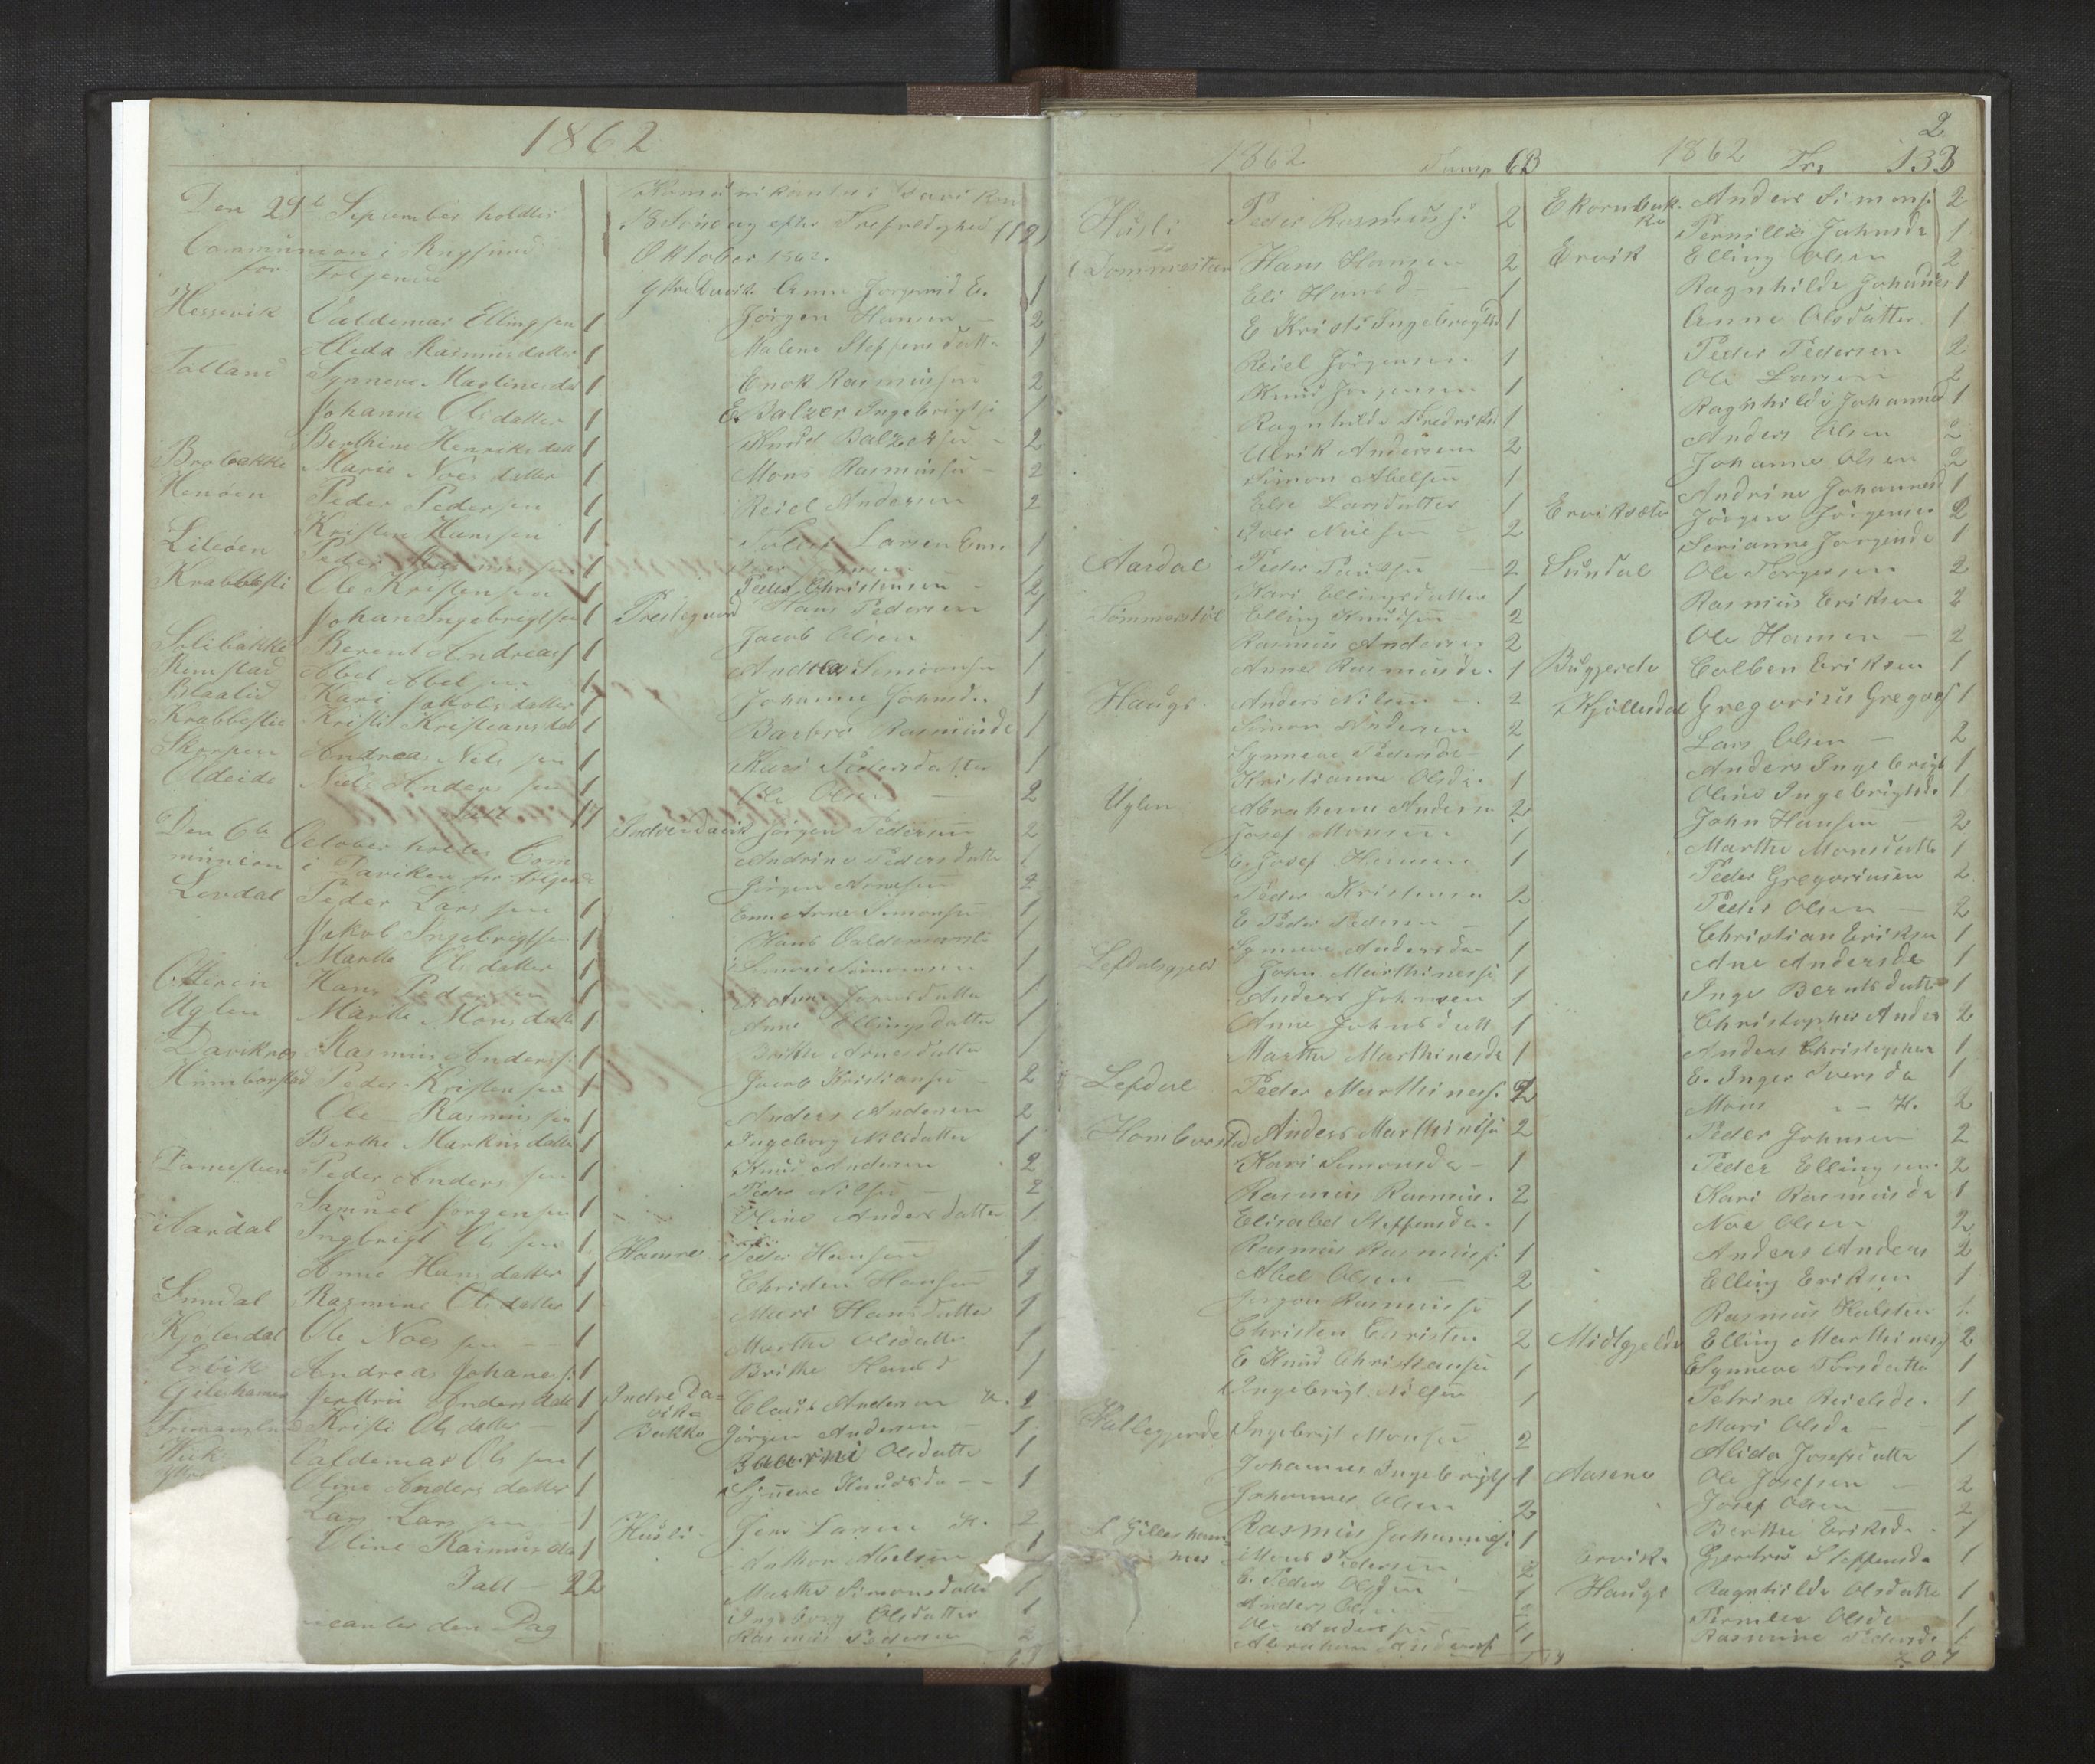 1862
Den 29de September holdtes
Communion i Rugsund
for Følgende
Hessevik Valdemar Ellingsen 1
Alida Rasmusdatter 1
Totland Synneve Martinesdat 1
Johanne Olsdatter 1
Berthine Henriksdatt 1
Brobakke Marie Noesdatter 1
Henöen Peder Pedersen 1
Kristen Hanssen 1
Lileöen Peder 1
Krabbesti Ole Kristensen 1
Johan Ingebrigtsen 1
Solibakke Berent Andreas 1
Rimstad Abel Abelsen 1
Blaalid Kari Jakobsdatter 1
Krabbestie Kristi Kristiansdat 1
Skorpen Andreas Nelssen 1
Oldeide Niels Anderssen 1
17
Den 6te October holdes Com
munion i Daviken for følgende
Levdal Peder Larssen 1
Jakob Ingebrigtsen 1
Marthe Olsdatter 1
Otteren Hans Pedersen 1
Uglen Marthe Monsdatter 1
Daviknes Rasmus Anderss. 1
Humborstad Peder Kristensen 1
Ole Rasmussen 1
Berthe Markusdatter 1
Peder Anderssen 1
Samuel Jørgensen 1
Aardal Ingbrigt Olssen 1
Anne Hansdatter 1
Sundal Rasmine Olsdatter 1
Kjølesdal Ole Noessen 1
Ervik Andreas Johanes. 1
Gileshamer Andersdatt 1
Kristi Olsdatter 1
Valdemar Olssen 1
Oline Andersdatter 1
Lars Larssen 1
Oline Rasmusda 1
Tall - 22
icanter den Dag
Kommunikanter i Daviken
18 Söndag efter Trefoldighed (19
Oktober 1862.
Ytre Davik Anne Jørgensd E. 1
Jørgen Hansen 2
Malene Steffensdatt 1
Enok Rasmussen 2
E. Balzer Ingebrigts 1
Knud Balzersen 2
Mons Rasmussen 2
Reiel Andersen 2
Larsen Em. 1
Peder Christensen 2
Prestegaard Hans Pedersen 1
Jacob Olsen 1
Andrea Simonsen 1
Johanne Johnsd. 1
Barbro Rasmusd 1
Kari Pedersdatter 1
Ole Olsen 2
Indre Davik Jørgen Pedersen 2
Andrine Pedersdatter 1
Jørgen Arnesen 2
Em. Arne Simonsen 1
Hans Valdemars 1
Simon Simonsen 1
Anne Jonsdatter 1
Anne Ellingsdatter 1
Brithe Arnesdatter 1
Jacob Kristiansen 2
Anders Andersen 2
Ingeborg Nilsdatter 1
Knud Andersen 2
Peder Nilsen 2
Oline Andersdatter 1
Hamre Peder Hansen 1
Christen Hansen 1
Mari Hansdatter 1
Marthe Olsdatter 1
Brithe Hansd 1
Indre Da= Claus Andersen K. 2
vik=
Bakke Jørgen Andersen 1
Olsdatter 1
Synneve Knudsda 1
Husli Jens Larsen K. 2
Anthon Abelsen 1
Marthe Simonsdatter 1
Ingeborg Olsdatter 1
Rasmus Pedersen 2
1862 Transp 63
Husli Peder Rasmuss. 2
Dommestein Hans Hansen 2
Eli Hansd 1
E Kristi Ingebrigtsd 1
Reiel Jørgensen 1
Knud Jørgensen 1
Ragnhilde Fredriksd 1
Ulrik Andersen 2
Simon Abelsen 1
Else Larsdatter 1
Iver Noesen 2
Aardal Peder Paulsen 2
Kari Ellingsdatter 1
Sommerstöl Elling Knudsen 2
Rasmus Andersen 2
Anne Rasmusda. 1
Hauge Anders Nilsen 2
Simon Andersen 2
Synneve Pedersda 1
Kristianne Olsda. 1
Uglen Abraham Andersen 2
Josef Monsen 1
E. Josef Hansen 1
Peder Kristensen 2
E Peder Pedersen 1
Synneve Andersda 1
Lefdalsgjeld John Marthiness 1
Anders Johnsen 1
Anne Johnsdatt 1
Marthe Marthinesda 1
Lefdal Peder Marthiness. 2
Homborstad Anders Marthinsen 2
Kari Simonsda 1
Rasmus Rasmus. 2
Elisabet Steffensda. 1
Rasmus Rasmuss. 1
Abel Olsen 2
Jørgen Rasmussen 1
Christen Christen 2
E Knud Christiansen 1
Ingebrigt Nilsen 1
Hallegjerde Ingebrigt Monsen 2
Johannes Ingebrigts 1
Johannes Olsen 2
L Gilleshammer Rasmus Johanness. 1
Mons Pedersen 2
E. Peder Olsen 1
Anders Olsen
Ole Andersen 1
Abraham Anders
2
1862 Tr. 133
Ekornbakke Anders Simons. 2
Pernille Johnsda 1
Ervik Elling Olsen 2
Ragnhilde Johannes 1
Anne Olsdatter 1
Peder Pedersen 2
Ole Larsen 2
Ragnhilde Johannesd 1
Anders Olsen 2
Johannes Olsen 2
Andrine Johannesd 1
Erviksæter Jørgen Jørgensen 2
Serianne Jørgensda 1
Sundal Ole Torgersen 2
Rasmus Eriksen 2
Ole Hansen 2
Buggjerde Colben Eriksen 1
Kjöllesdal Gregorius Gregors 1
Lars Olsen 2
Anders Ingebrigt 1
Oline Ingebrigtsda 1
John Hansen 2
Marthe Monsdatter 1
Peder Gregoriusen 2
Peder Olsen 2
Christian Eriksen 1
Ane Andersda 1
Inge Berntsdatter 1
Christopher Anders 2
Anders Christophers 1
E. Inger Iversda 1
Mons - - K. 2
Peder Johnsen 2
Peder Ellingsen 2
Kari Rasmusda 1
Noe Olsen 2
Anders Anders 2
Elling Eriksen 1
Rasmus Halsten 1
Midtgjelde Elling Marthines 2
E Synneve Larsdatter 1
Petrine Reielsda. 1
Mari Olsda 1
Alida Josefsdatter 1
Aasene Ole Josefsen 2
Josef Olsen 2
Berthe Eriksda. 1
Ervik. Gjertrud Steffensda 1
Hauge Ragnhilde Olsdatter 1
Pernille Olsda 1
Rasmine Pedersda 1
207